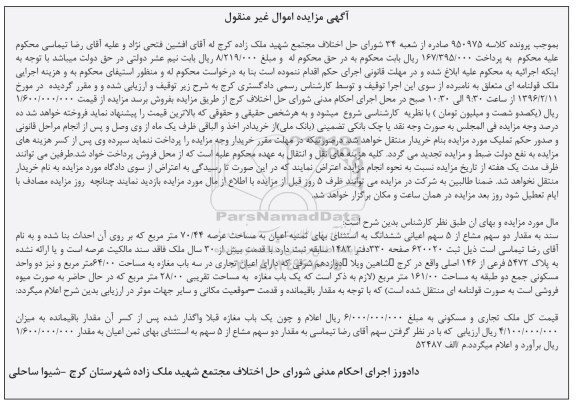 آگهی مزایده اموال غیر منقول
بموجب پرونده کلاسه ۹۵۰۹۷۵ صادره از شعبه ۳۴ شورای حل اختلاف مجتمع شهید ملک زاده کرج له آقای افشین فتحی نژاد و علیه آقای رضا تیماسی محکوم
علیه محکوم به پرداخت ۱۶۷/۳۹۵/۰۰۰ ریال بابت محکوم به در حق محکوم له و مبلغ ۸/۲۱۹/۰۰۰ ریال بابت نیم عشر دولتی در حق دولت میباشد با توجه به
اینکه اجرائیه به محکوم علیه ابلاغ شده و در مهلت قانونی اجرای حکم اقدام ننموده است بنا به درخواست محکوم له و منظور استیفای محکوم به و هزینه اجرایی
ملک قولنامه ای متعلق به نامبرده از سوی این اجرا توقیف و توسط کارشناس رسمی دادگستری کرج به شرح زیر توقیف و ارزیابی شده و و مقرر گردیده در مورخ
۱۳۹۶/۲/۱۱ از ساعت ۹:۳۰ الی ۱۰:۳۰ صبح در محل اجرای احکام مدنی شورای حل اختلاف کرج از طریق مزایده بفروش برسد مزایده از قیمت ۱/۶۰۰/۰۰۰/۰۰۰
ریال (یکصدو شصت و میلیون تومان ) با نظریه کارشناسی شروع میشود و به هرشخص حقیقی و حقوقی که بالاترین قیمت را پیشنهاد نماید فروخته خواهد شد ده
درصد وجه مزایده فی المجلس به صورت وجه نقد یا چک بانکی تضمینی (بانک ملی)از خریدار اخذ و الباقی ظرف یک ماه از وی وصل و پس از انجام مراحل قانونی
و صدور حکم تملیک مورد مزایده بنام خریدار منتقل خواهد شد.درصورتیکه در مهلت مقرر خریدار وجه مزایده را پرداخت ننماید سپرده وی پس از کسر هزینه های
مزایده به نفع دولت ضبط و مزایده تجدید می گردد. کلیه هزینه های نقل و انتقال به عهده محکوم علیه است که از محل فروش پرداخت خواهد شد.طرفین می توانند
ظرف مدت یک هفته از تاریخ مزایده نسبت به نحوه انجام مزایده اعتراض نمایند که در این صورت تا رسیدگی به اعتراض از سوی دادگاه مورد مزایده به نام خریدار
منتقل نخواهد شد. ضمنا طالبین به شرکت در مزایده می توانند ظرف ۵ روز قبل از مزایده با اطلاع از مال مورد مزایده بازدید نمایند چنانچه روز مزایده مصادف با
ایام تعطیل شود روز بعد مزایده در همان ساعت و مکان برگزار خواهد شد.
مال مورد مزایده و بهای ان طبق نظر کارشناس بدین شرح است:
سند به مقدار دو سهم مشاع از ۵ سهم اعیانی ششدانگ به استثنای بهای ثمنیه اعیان به مساحت عرصه ۷۰/۴۴ متر مربع که بر روی آن احداث بنا شده و به نام
آقای رضا تیماسی است ذیل ثبت ۶۲۰۰۲۰ صفحه ۳۳۰دفتر ۱۴۸۲ سابقه ثبت دارد با قدمت بیش از ۳۰ سال ملک فاقد سند مالکیت عرصه است و یا ارائه شده
به پلاک ۵۴۷۲ فرعی از ۱۴۶ اصلی واقع در کرج شاهین ویلا دوازدهم شرقی که دارای اعیان تجاری در سه باب مغازه به مساحت ۶۴/۰۰متر مربع و نیز دو واحد
مسکونی جمع دو طبقه به مساحت ۱۶۱/۰۰ متر مربع (لازم به ذکر است که یک باب مغازه به مساحت تقریبی ۲۸/۰۰ متر مربع که در حال حاضر به صورت میوه
فروشی است به صورت قولنامه ای منتقل شده است) که با توجه به مقدار باقیمانده و قدمت –موقعیت مکانی و سایر جهات موثر در ارزیابی بدین شرح اعلام میگردد:
قیمت کل ملک تجاری و مسکونی به مبلغ ۶/۰۰۰/۰۰۰/۰۰۰ ریال اعلام و چون یک باب مغازه قبلا واگذار شده پس از کسر آن مقدار باقیمانده به میزان
۴/۱۰۰/۰۰۰/۰۰۰ ریال ارزیابی که با در نظر گرفتن سهم آقای رضا تیماسی به مقدار دو سهم مشاع از ۵ سهم به استثنای بهای ثمن اعیان به مقدار ۱/۶۰۰/۰۰۰/۰۰۰
ریال برآورد و اعلام میگردد.م /الف ۵۲۴۸۷
دادورز اجرای احکام مدنی شورای حل اختلاف مجتمع شهید ملک زاده شهرستان کرج –شیوا ساحلی
ParsNamadData